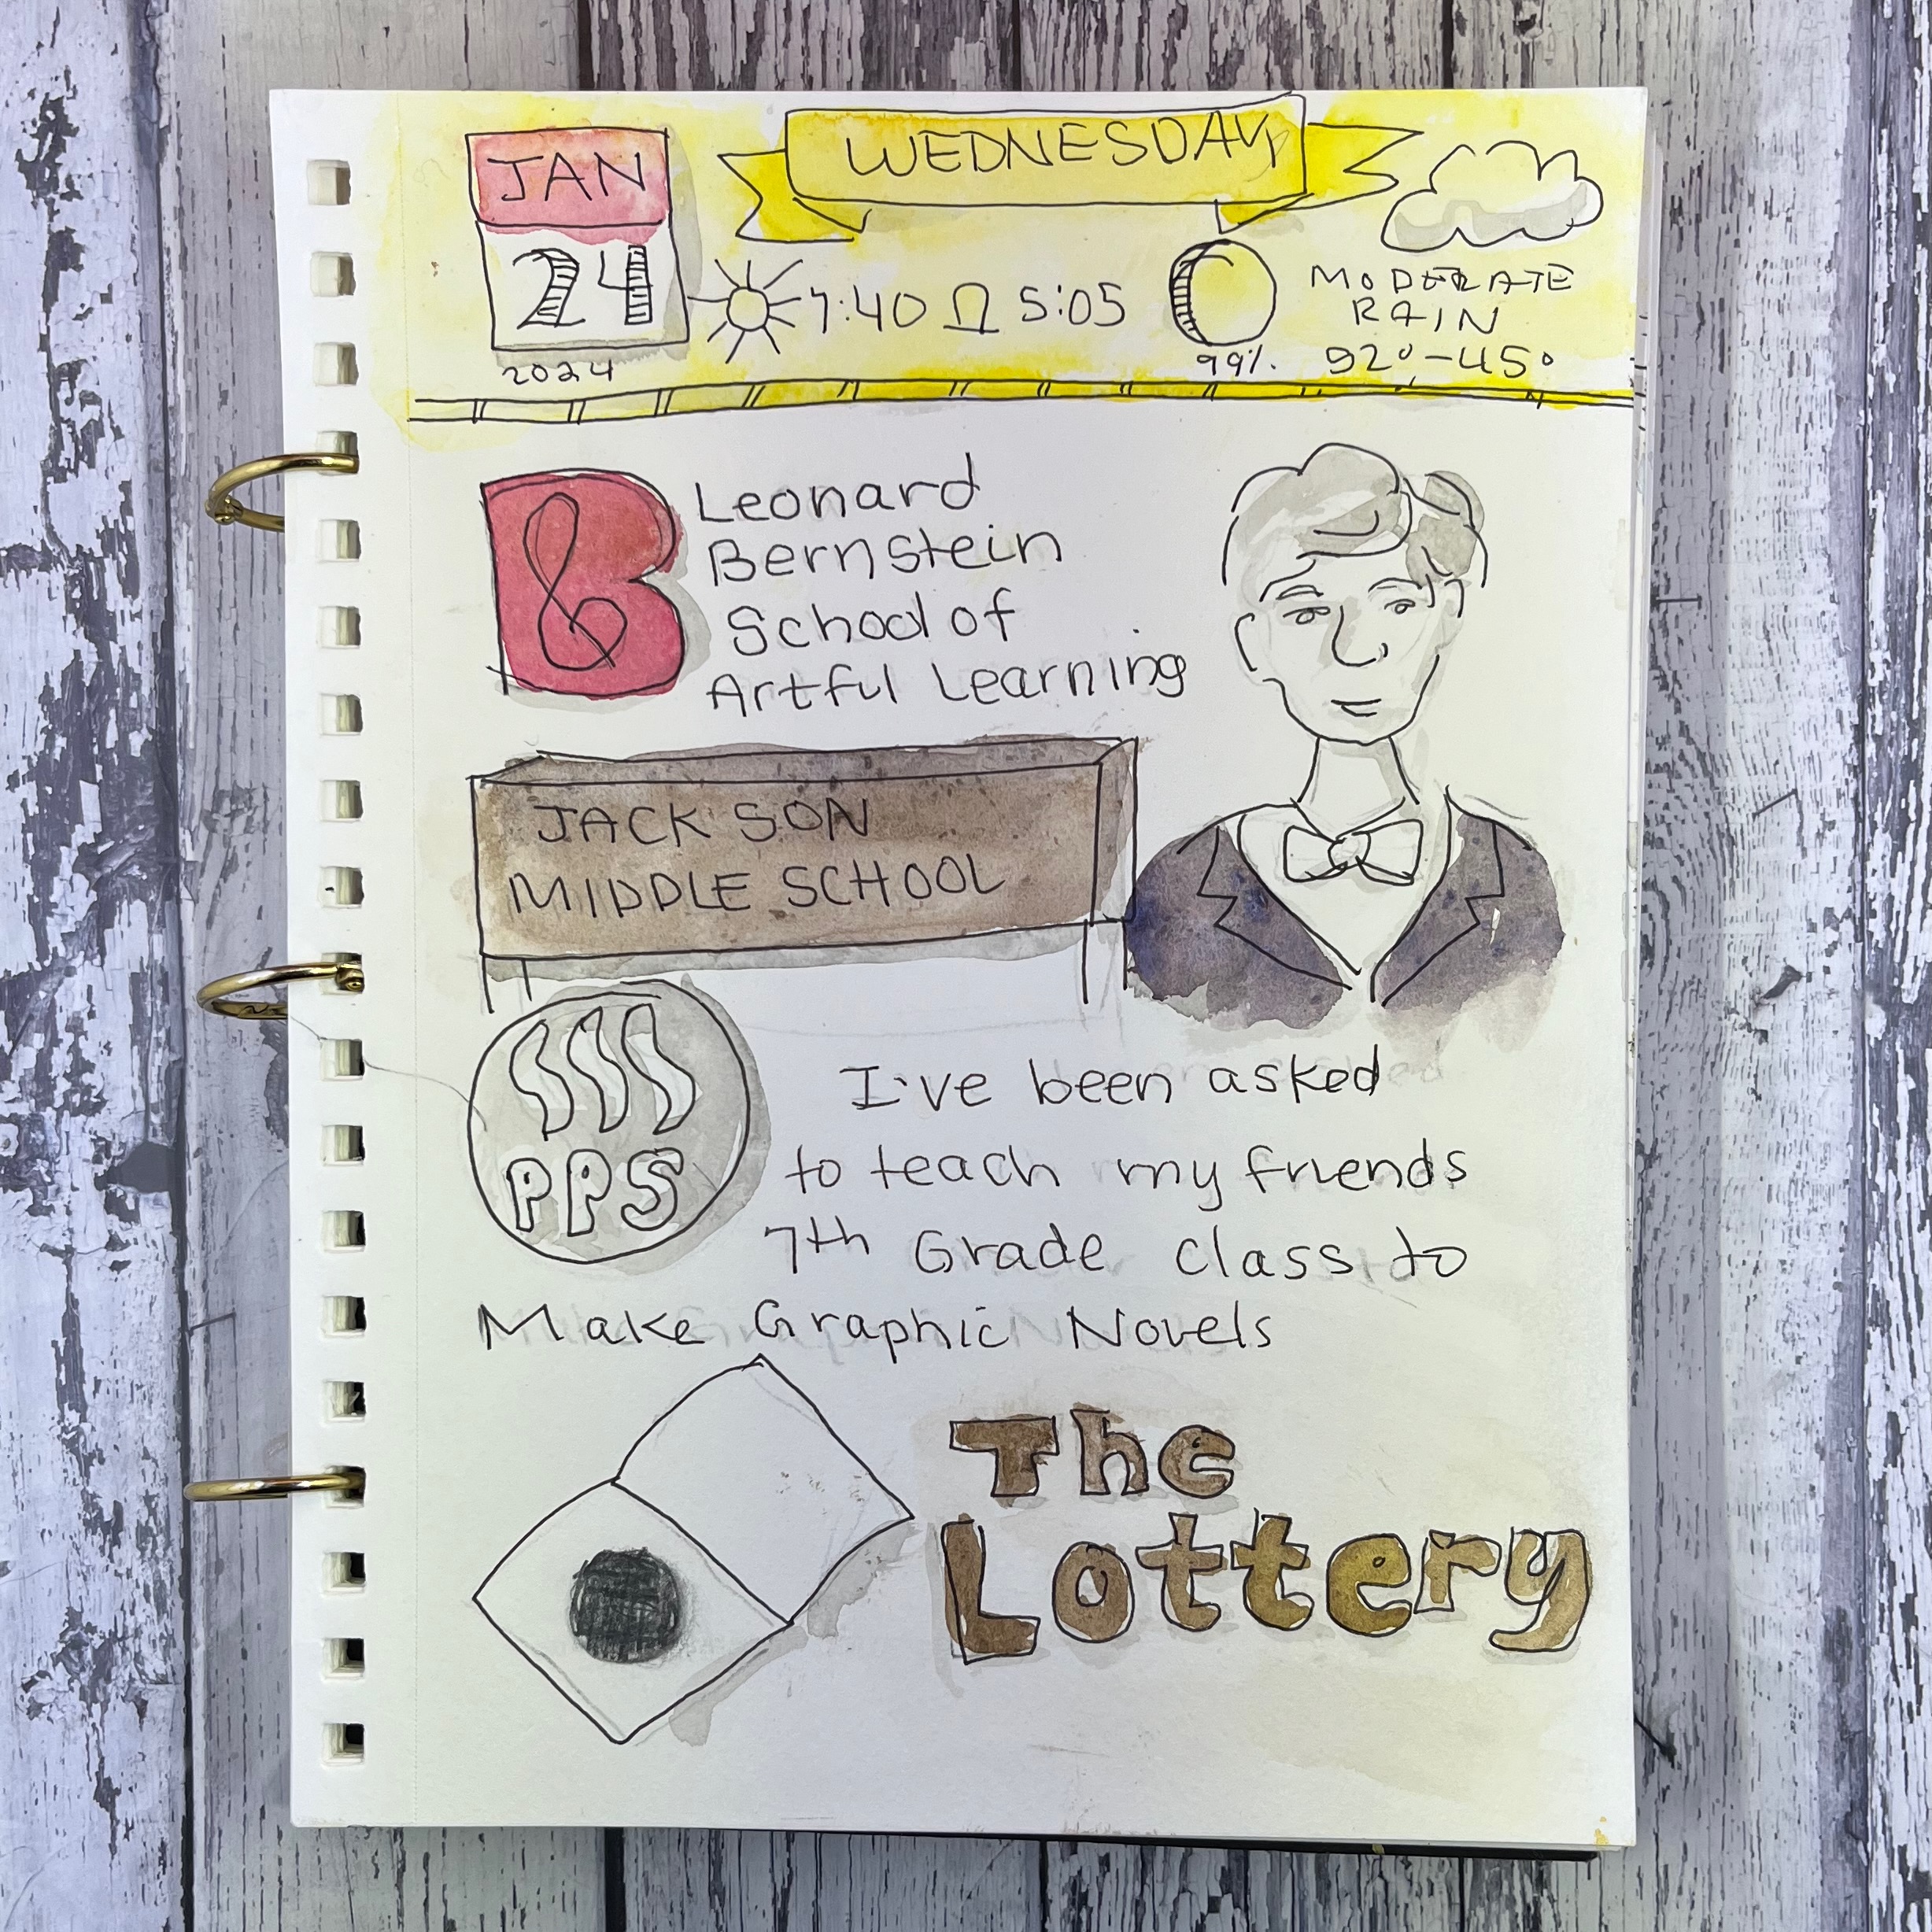 JAN
24
2024
WEDNESDAY
7:40 Ω 5:05
99%.
MODERATE
RAIN
92°-45°
B
Leonard
Bernstein
School of
Artful Learning
JACKSON
MIDDLE SCHOOL
PPS
I've been asked
to teach my friends
7th Grade class to
Make Graphic Novels
The
Lottery